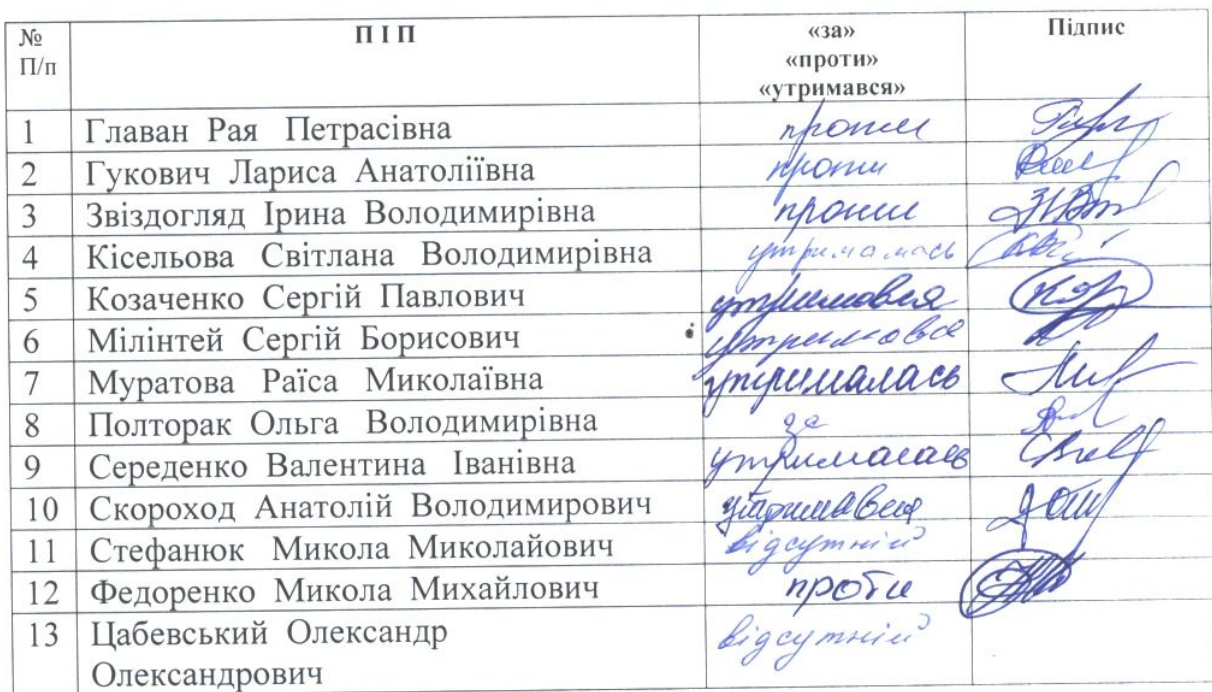 № П/п П І П «за» «проти» «утримався» Підпис
1 Главан Рая Петрасівна проти
2 Гукович Лариса Анатоліївна проти
3 Звіздогляд Ірина Володимирівна проти
4 Кісельова Світлана Володимирівна утрималась
5 Козаченко Сергій Павлович утримався
6 Мілінтей Сергій Борисович утримався
7 Муратова Раїса Миколаївна утрималась
8 Полторак Ольга Володимирівна за
9 Середенко Валентина Іванівна утрималась
10 Скороход Анатолій Володимирович утримався
11 Стефанюк Микола Миколайович відсутній
12 Федоренко Микола Михайлович проти
13 Цабевський Олександр відсутній
Олександрович